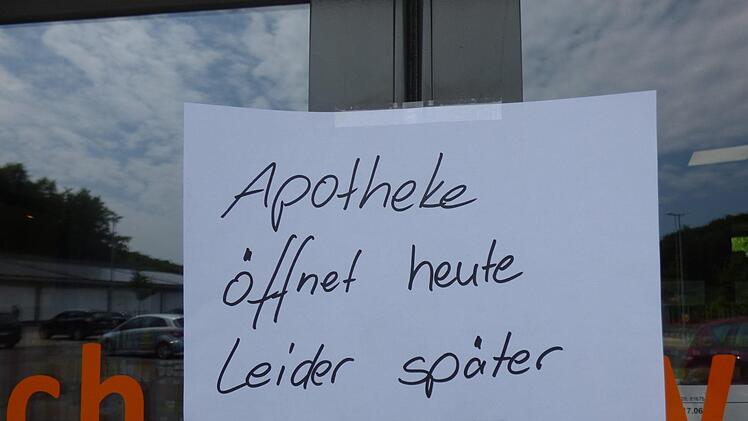 Apotheke
öffnet heute
Leider später
ch
17.06